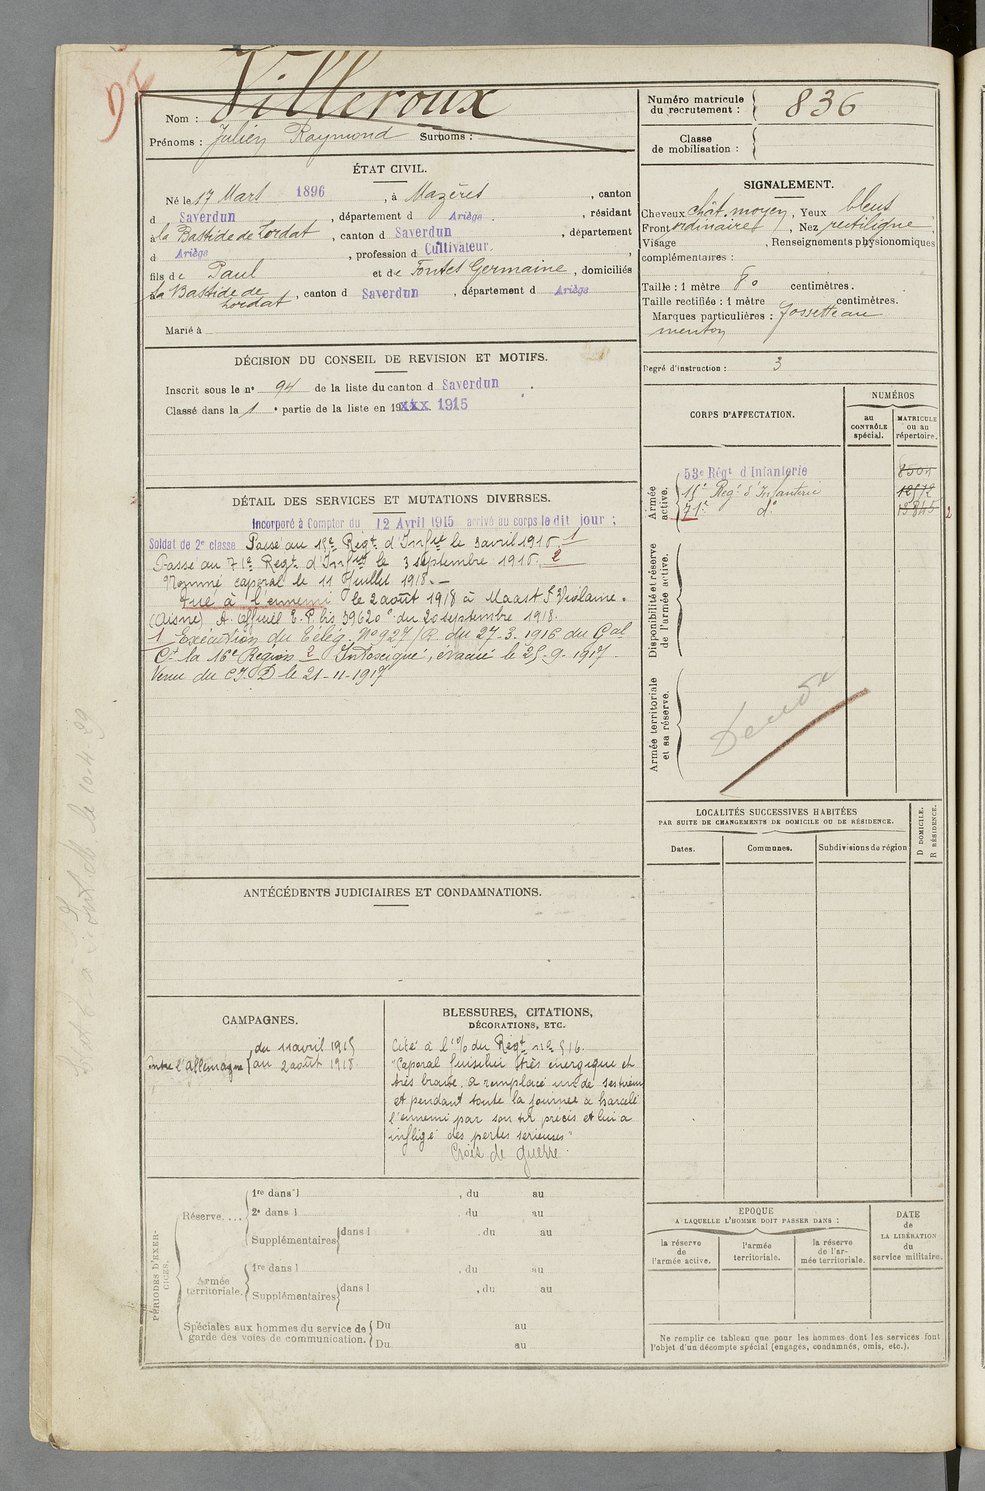 Villeroux
Nom :
Prénoms : Julien Raymond Surnoms :
Numéro matricule
du recrutement : 836
Classe
de mobilisation :
ÉTAT CIVIL.
Né le 17 Mars 1896, à Mazères, canton
d Saverdun, département d Ariège, résidant
à la Bastide de Lordat, canton d Saverdun, département
d Ariège, profession d Cultivateur,
fils de Paul et de Fontes Germaine, domiciliés
à la Bastide de Lordat, canton d Saverdun, département d Ariège
Marié à
SIGNALEMENT.
Cheveux chât. moyen, Yeux bleus,
Front ordinaire, Nez rectiligne,
Visage, Renseignements physionomiques
complémentaires :
Taille : 1 mètre centimètres.
Taille rectifiée : 1 mètre centimètres.
Marques particulières : fossette au
menton
Degré d'instruction : 3
DÉCISION DU CONSEIL DE REVISION ET MOTIFS.
Inscrit sous le n° 94 de la liste du canton d Saverdun.
Classé dans la 1e partie de la liste en 19xxx 1915
DÉTAIL DES SERVICES ET MUTATIONS DIVERSES.
Incorporé à Compter du 12 Avril 1915 arrivé au corps le dit jour ;
Soldat de 2e classe Passé au 15e Régt d'Infrie le avril 1916. 1
Passé au 71e Regt d'Infrie le 3 septembre 1916. 2
Nommé caporal le 11 Juillet 1918. —
Tué à l'ennemi le 2 août 1918 à Maast &amp; Violaine.
(Aisne) A. Officiel du 20 septembre 1918.
1 Exécution du Télég. N° 927/R. du 27-3-1916 du Gal
Ct la 16e Région 2 Intoxiqué, évacué le 25-9-1917
Venu du C.I.D le 21-11-1917
CORPS D'AFFECTATION.
NUMÉROS
au
CONTRÔLE
spécial.
MATRICULE
ou au
répertoire.
Armée
active.
53e Régt d'Infanterie
15e Regt d'Infanterie 12512
71e do 13845 2
Disponibilité et réserve
de l'armée active.
Armée territoriale
et sa réserve.
LOCALITÉS SUCCESSIVES HABITÉES
PAR SUITE DE CHANGEMENTS DE DOMICILE OU DE RÉSIDENCE.
Dates.
Communes.
Subdivisions de région
D DOMICILE.
R RÉSIDENCE.
ANTÉCÉDENTS JUDICIAIRES ET CONDAMNATIONS.
CAMPAGNES.
Contre l'Allemagne du 11 avril 1915
au 2 août 1918
BLESSURES, CITATIONS,
DÉCORATIONS, ETC.
Cité à l'O/ du Régt n° 516.
"Caporal fusilier très énergique et
très brave, a remplacé un de ses
et pendant toute la journée a harcelé
l'ennemi par son tir précis et lui a
infligé des pertes sérieuses"
Croix de guerre.
PÉRIODES D'EXERCICES.
Réserve....
1re dans l , du au
2e dans l , du au
Supplémentaires dans l , du au
Armée
territoriale.
1re dans l , du au
Supplémentaires dans l , du au
Spéciales aux hommes du service de
garde des voies de communication.
Du au
Du au
EPOQUE
A LAQUELLE L'HOMME DOIT PASSER DANS :
la réserve
de
l'armée active.
l'armée
territoriale.
la réserve
de l'ar-
mée territoriale.
DATE
de
LA LIBÉRATION
du
service militaire.
Ne remplir ce tableau que pour les hommes dont les services font
l'objet d'un décompte spécial (engagés, condamnés, omis, etc.).